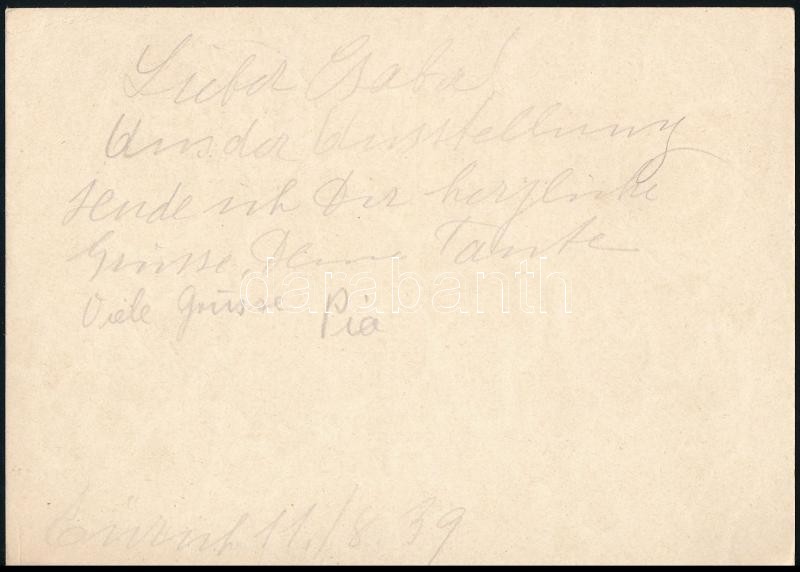 Lieber Csaba!
Von der Ausstellung
sende ich Dir herzliche
Grüsse, Deine Tante
Viele Grüsse Pia
darabanth
Zürich 11./8. 39